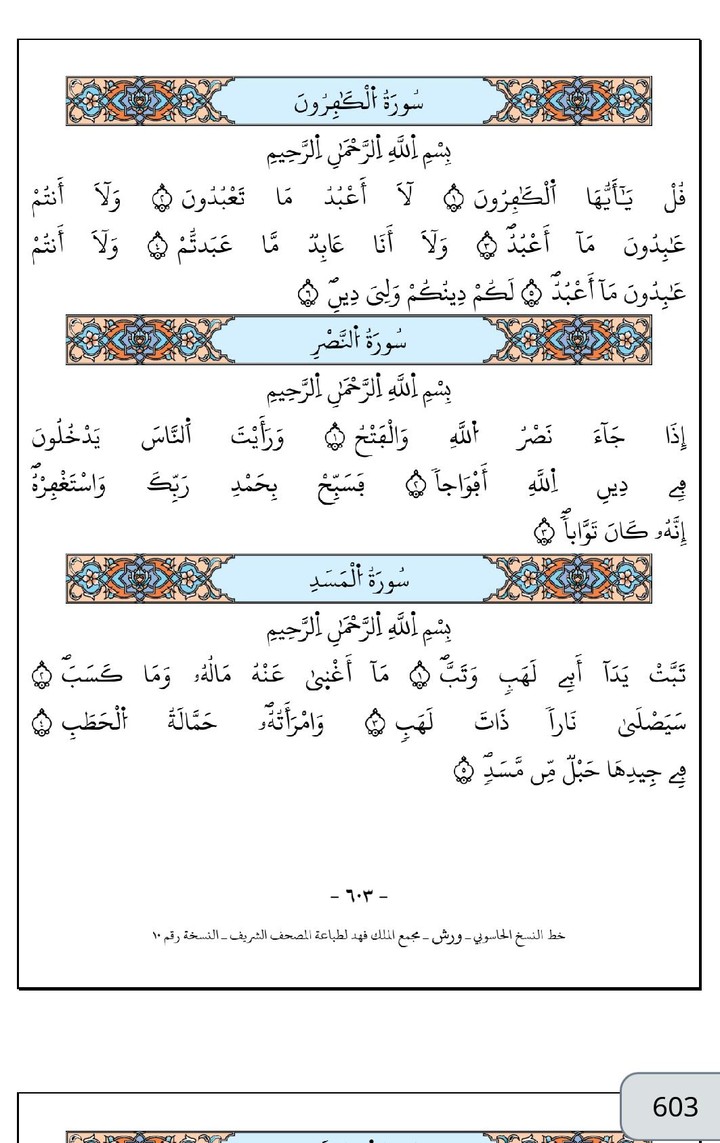 سُورَةُ اُ۬لْكَٰفِرُونَ
بِسْمِ اِ۬للَّهِ اِ۬لرَّحْمَٰنِ اِ۬لرَّحِيمِ
قُلْ يَٰٓأَيُّهَا اَ۬لْكَٰفِرُونَ ١ لَآ أَعْبُدُ مَا تَعْبُدُونَ ٢ وَلَآ أَنتُمْ
عَٰبِدُونَ مَآ أَعْبُدُۖ ٣ وَلَآ أَنَا عَابِدٞ مَّا عَبَدتُّمْ ٤ وَلَآ أَنتُمْ
عَٰبِدُونَ مَآ أَعْبُدُۖ ٥ لَكُمْ دِينُكُمْ وَلِيَ دِينِۖ ٦
سُورَةُ اُ۬لنَّصْرِ
بِسْمِ اِ۬للَّهِ اِ۬لرَّحْمَٰنِ اِ۬لرَّحِيمِ
إِذَا جَآءَ نَصْرُ اُ۬للَّهِ وَالْفَتْحُ ١ وَرَأَيْتَ اَ۬لنَّاسَ يَدْخُلُونَ
فِے دِينِ اِ۬للَّهِ أَفْوَاجاٗ ٢ فَسَبِّحْ بِحَمْدِ رَبِّكَ وَاسْتَغْفِرْهُۖ
إِنَّهُۥ كَانَ تَوَّاباٗۖ ٣
سُورَةُ اُ۬لْمَسَدِ
بِسْمِ اِ۬للَّهِ اِ۬لرَّحْمَٰنِ اِ۬لرَّحِيمِ
تَبَّتْ يَدَآ أَبِے لَهَبٖ وَتَبَّۖ ١ مَآ أَغْنۭيٰ عَنْهُ مَالُهُۥ وَمَا كَسَبَۖ ٢
سَيَصْلَىٰ نَاراٗ ذَاتَ لَهَبٖ ٣ وَامْرَأَتُهُۥۖ حَمَّالَةُ اُ۬لْحَطَبِ ٤
فِے جِيدِهَا حَبْلٞ مِّن مَّسَدٖۖ ٥
- ٦٠٣ -
خط النسخ الحاسوبي ـ ورش ـ مجمع الملك فهد لطباعة المصحف الشريف ـ النسخة رقم ١٠
603